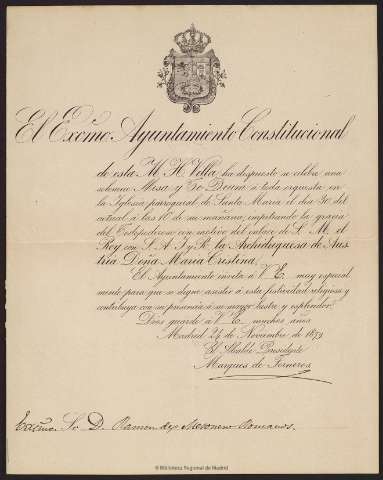 El Excmo. Ayuntamiento Constitucional
de esta M. H. Villa ha dispuesto se celebre una
solemne Misa y Te Deum á toda orquesta en
la Iglesia parroquial de Santa María el dia 30 del
actual á las 10 de su mañana, impetrando la gracia
del Todopoderoso con motivo del enlace de S. M. el
Rey con S. A. I. y R. la Archiduquesa de Aus
tria Doña María Cristina.
El Ayuntamiento invita á V. E. muy especial
mente para que se digne asistir á esta festividad religiosa y
contribuya con su presencia á su mayor lustre y esplendor.
Dios guarde á V. E. muchos años.
Madrid 24 de Noviembre de 1879
El Alcalde Presidente
Marques de Torneros
Excmo. Sr. D. Ramon de Mesonero Romanos.
© Biblioteca Regional de Madrid